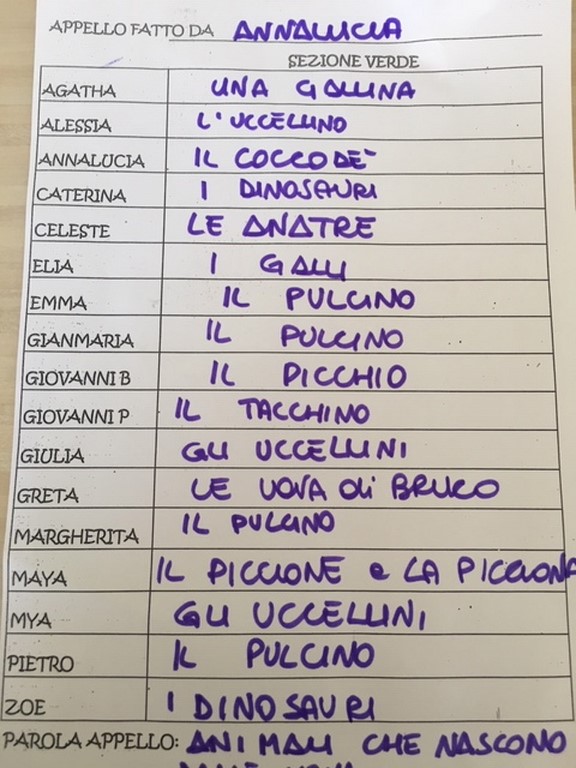 APPELLO FATTO DA ANNALUCIA
SEZIONE VERDE
AGATHA UNA GALLINA
ALESSIA L'UCCELLINO
ANNALUCIA IL COCCODE'
CATERINA I DINOSAURI
CELESTE LE ANATRE
ELIA I GALLI
EMMA IL PULCINO
GIANMARIA IL PULCINO
GIOVANNI B IL PICCHIO
GIOVANNI P IL TACCHINO
GIULIA GLI UCCELLINI
GRETA LE UOVA di BRUCO
MARGHERITA IL PULCINO
MAYA IL PICCIONE e LA PICCIONA
MYA GLI UCCELLINI
PIETRO IL PULCINO
ZOE I DINOSAURI
PAROLA APPELLO: ANIMALI CHE NASCONO